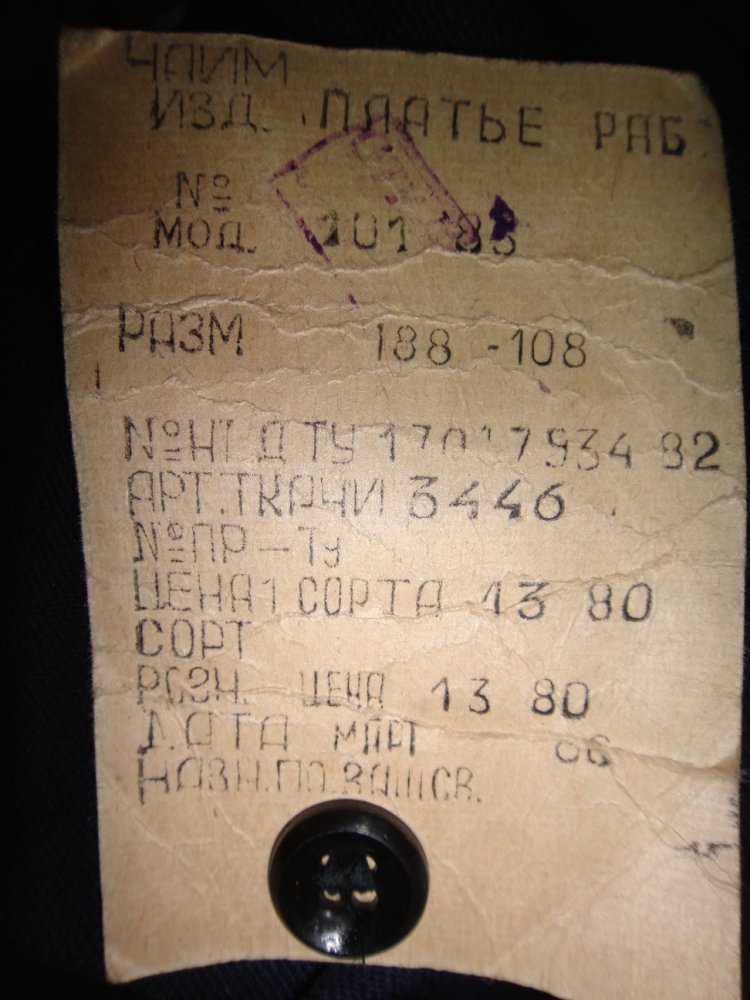 НАИМ
ИЗД. ПЛАТЬЕ РАБ
№
МОД. 101 83
РАЗМ 188 -108
№ НТ Д ТУ 17 01 7934 82
АРТ. ТКАНИ 3446
№ПР-ТУ
ЦЕНА 1 СОРТА 13 80
СОРТ
РОЗН. ЦЕНА 13 80
ДАТА МАРТ 86
НАЗН.ПО.ЗАЩ.СВ.